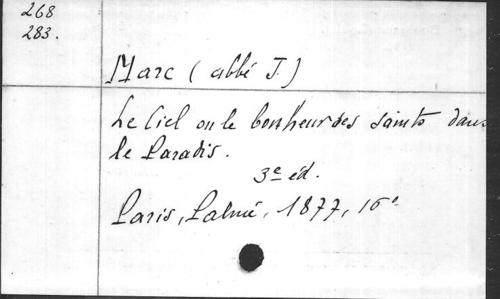 268
283.
Marc (abbé J.)
Le Ciel ou le bonheur des saints dans
le Paradis.
3e éd.
Paris, Palmé, 1877, 16°